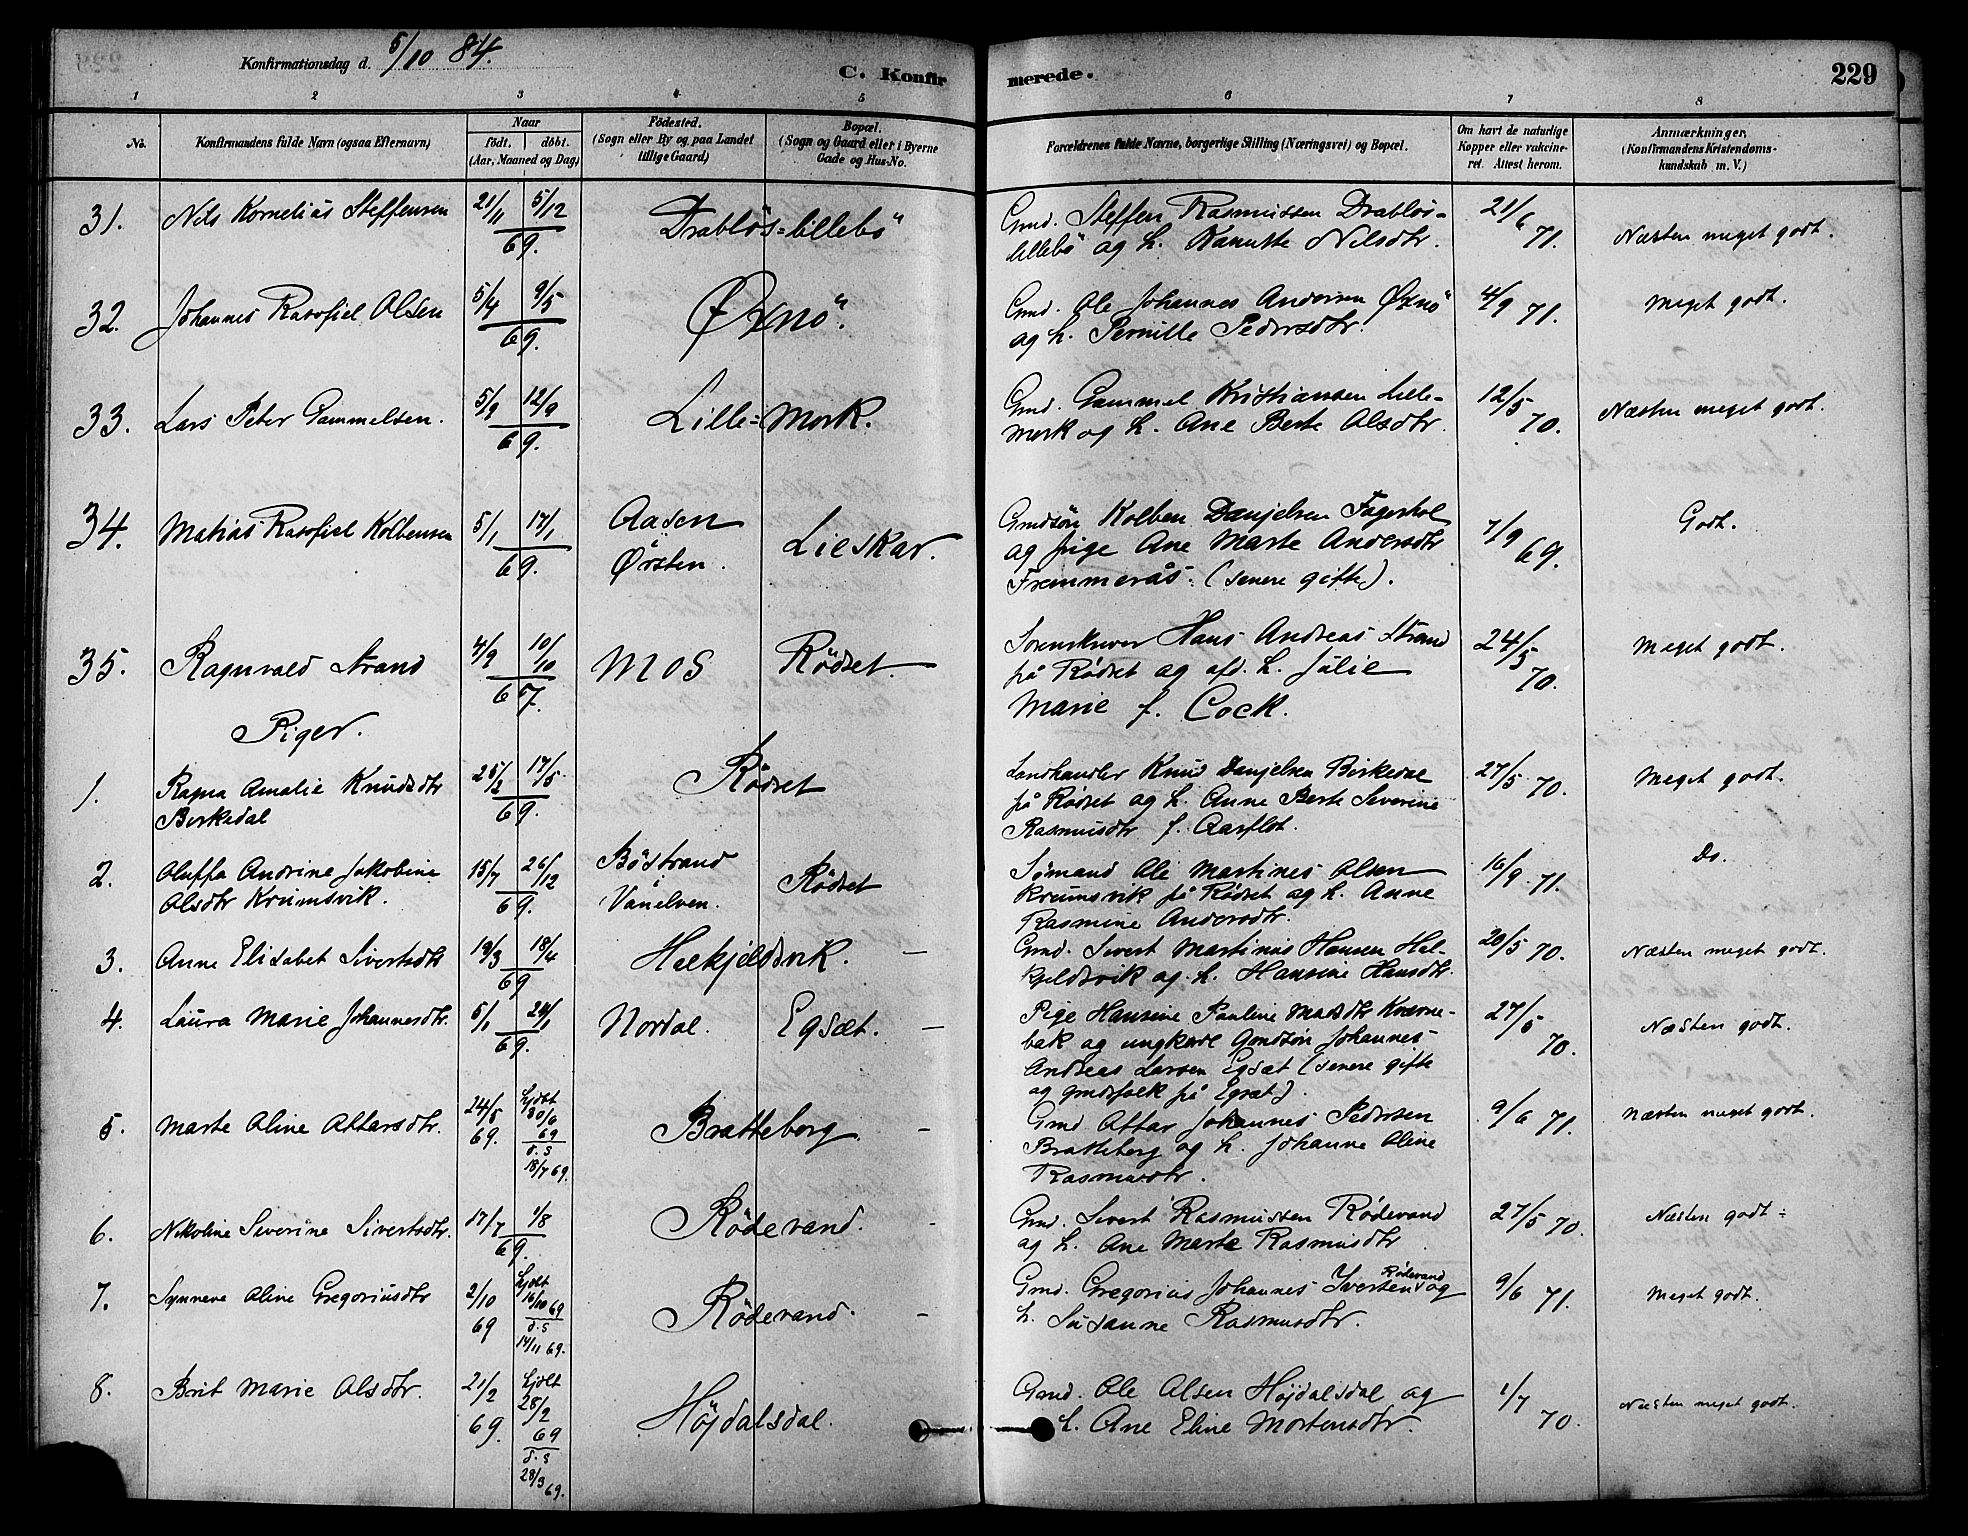 Konfirmationsdag d. 5/10 84.
C. Konfirmerede.
229
1 2 3 4 5 6 7 8
No.
Konfirmandens fulde Navn (ogsaa Efternavn)
Naar
födt. döbt.
(Aar, Maaned og Dag)
Födested.
(Sogn eller By og paa Landet
tillige Gaard)
Bopæl.
(Sogn og Gaard eller i Byerne
Gade og Hus-No.
Forældrenes fulde Navne, borgerlige Stilling (Næringsvei) og Bopæl.
Om havt de naturlige
Kopper eller vakcine-
ret. Attest herom.
Anmærkninger,
(Konfirmandens Kristendoms-
kundskab m. V.)
31. Nils Kornelius Steffensen 21/11 5/12 69. Drabløs-lillebø
Gmd. Steffen Rasmussen Drabløs-
lillebø og h. Kanutte Nilsdtr. 21/6 71. Næsten meget godt.
32. Johannes Olsen 5/4 9/5 69. Øxnø.
Gmd. Ole Johannes Andersen Øxnø
og h. Pernille Pedersdtr. 4/9 71. Meget godt.
33. Lars Peter Gammelsen. 5/9 12/9 69. Lille-Mork.
Gmd. Gammel Kristiansen Lille-
mork og h. Ane Berte Olsdtr. 12/5 70. Næsten meget godt.
34. Matias Kolbensen 5/1 17/1 69. Aasen
Ørsten. Lieskar.
Gmdsøn Kolben Danjelsen Fagerhol
og pige Ane Marte Andersdtr
Fremmerås. (senere gifte). 7/9 69. Godt.
35. Ragnvald Strand 4/9 10/10 67. Mos Rødset.
Sorenskriver Hans Andreas Strand
på Rødset og afd. h. Julie
Marie f. Cock. 24/5 70. Meget godt.
Piger.
1. Ragna Amalie Knudsdtr
Birkedal 25/3 17/5 69. Rødset
Landhandler Knud Danjelsen Birkedal
på Rødset og h. Anne Berte Severine
Rasmusdtr f. Aarflot. 27/5 70. Meget godt.
2. Oluffa Andrine Jakobine
Olsdtr Krumsvik. 15/7 26/12 69. Böstrand
Vanelven. Rødset
Sømand Ole Martines Olsen
Krumsvik på Rødset og h. Anne
Rasmine Andersdtr. 16/9 71. Do.
3. Anne Elisabet Sivertsdtr 19/3 18/4 69 Halkjeldsvik. —
Gmd. Sivert Martinus Hansen Hal-
kjeldsvik og h. Hansine Hansdtr. 20/5 70. Næsten meget godt.
4. Laura Marie Johannesdtr. 5/1 24/1 69. Nordal. Egsæt. —
Pige Hansine Pauline Madsdtr Kværne-
bak og ungkarl Gmdsøn Johannes
Andreas Larsen Egsæt (senere gifte
og gmdsfolk på Egsæt). 27/5 70. Næsten godt.
5. Marte Oline Ottarsdtr. 24/5 69. hjdbt 30/6 69 d. s 18/7 69. Bratteberg. —
Gmd Ottar Johannes Pedersen
Bratteberg og h. Johanne Oline
Rasmusdtr. 9/6 71. Næsten meget godt.
6. Nikoline Severine Sivertsdtr. 17/7 1/8 69. Rødevand. -
Gmd. Sivert Rasmussen Rødevand
og h. Ane Marte Rasmusdtr 27/5 70. Næsten godt.
7. Synneve Oline Gregoriusdtr 2/10 69 hjdbt 16/10 69 d. s 14/11 69. Rødevand. -
Gmd. Gregorius Johannes Iversen Rødevand og
h. Susanne Rasmusdtr. 9/6 71. Meget godt.
8. Brit Marie Olsdtr. 21/2 69. hjdbt 28/2 69 d. s 28/3 69. Højdalsdal.
Gmd. Ole Olsen Højdalsdal og
h. Ane Eline Mortensdtr. 1/7 70. Næsten meget godt.